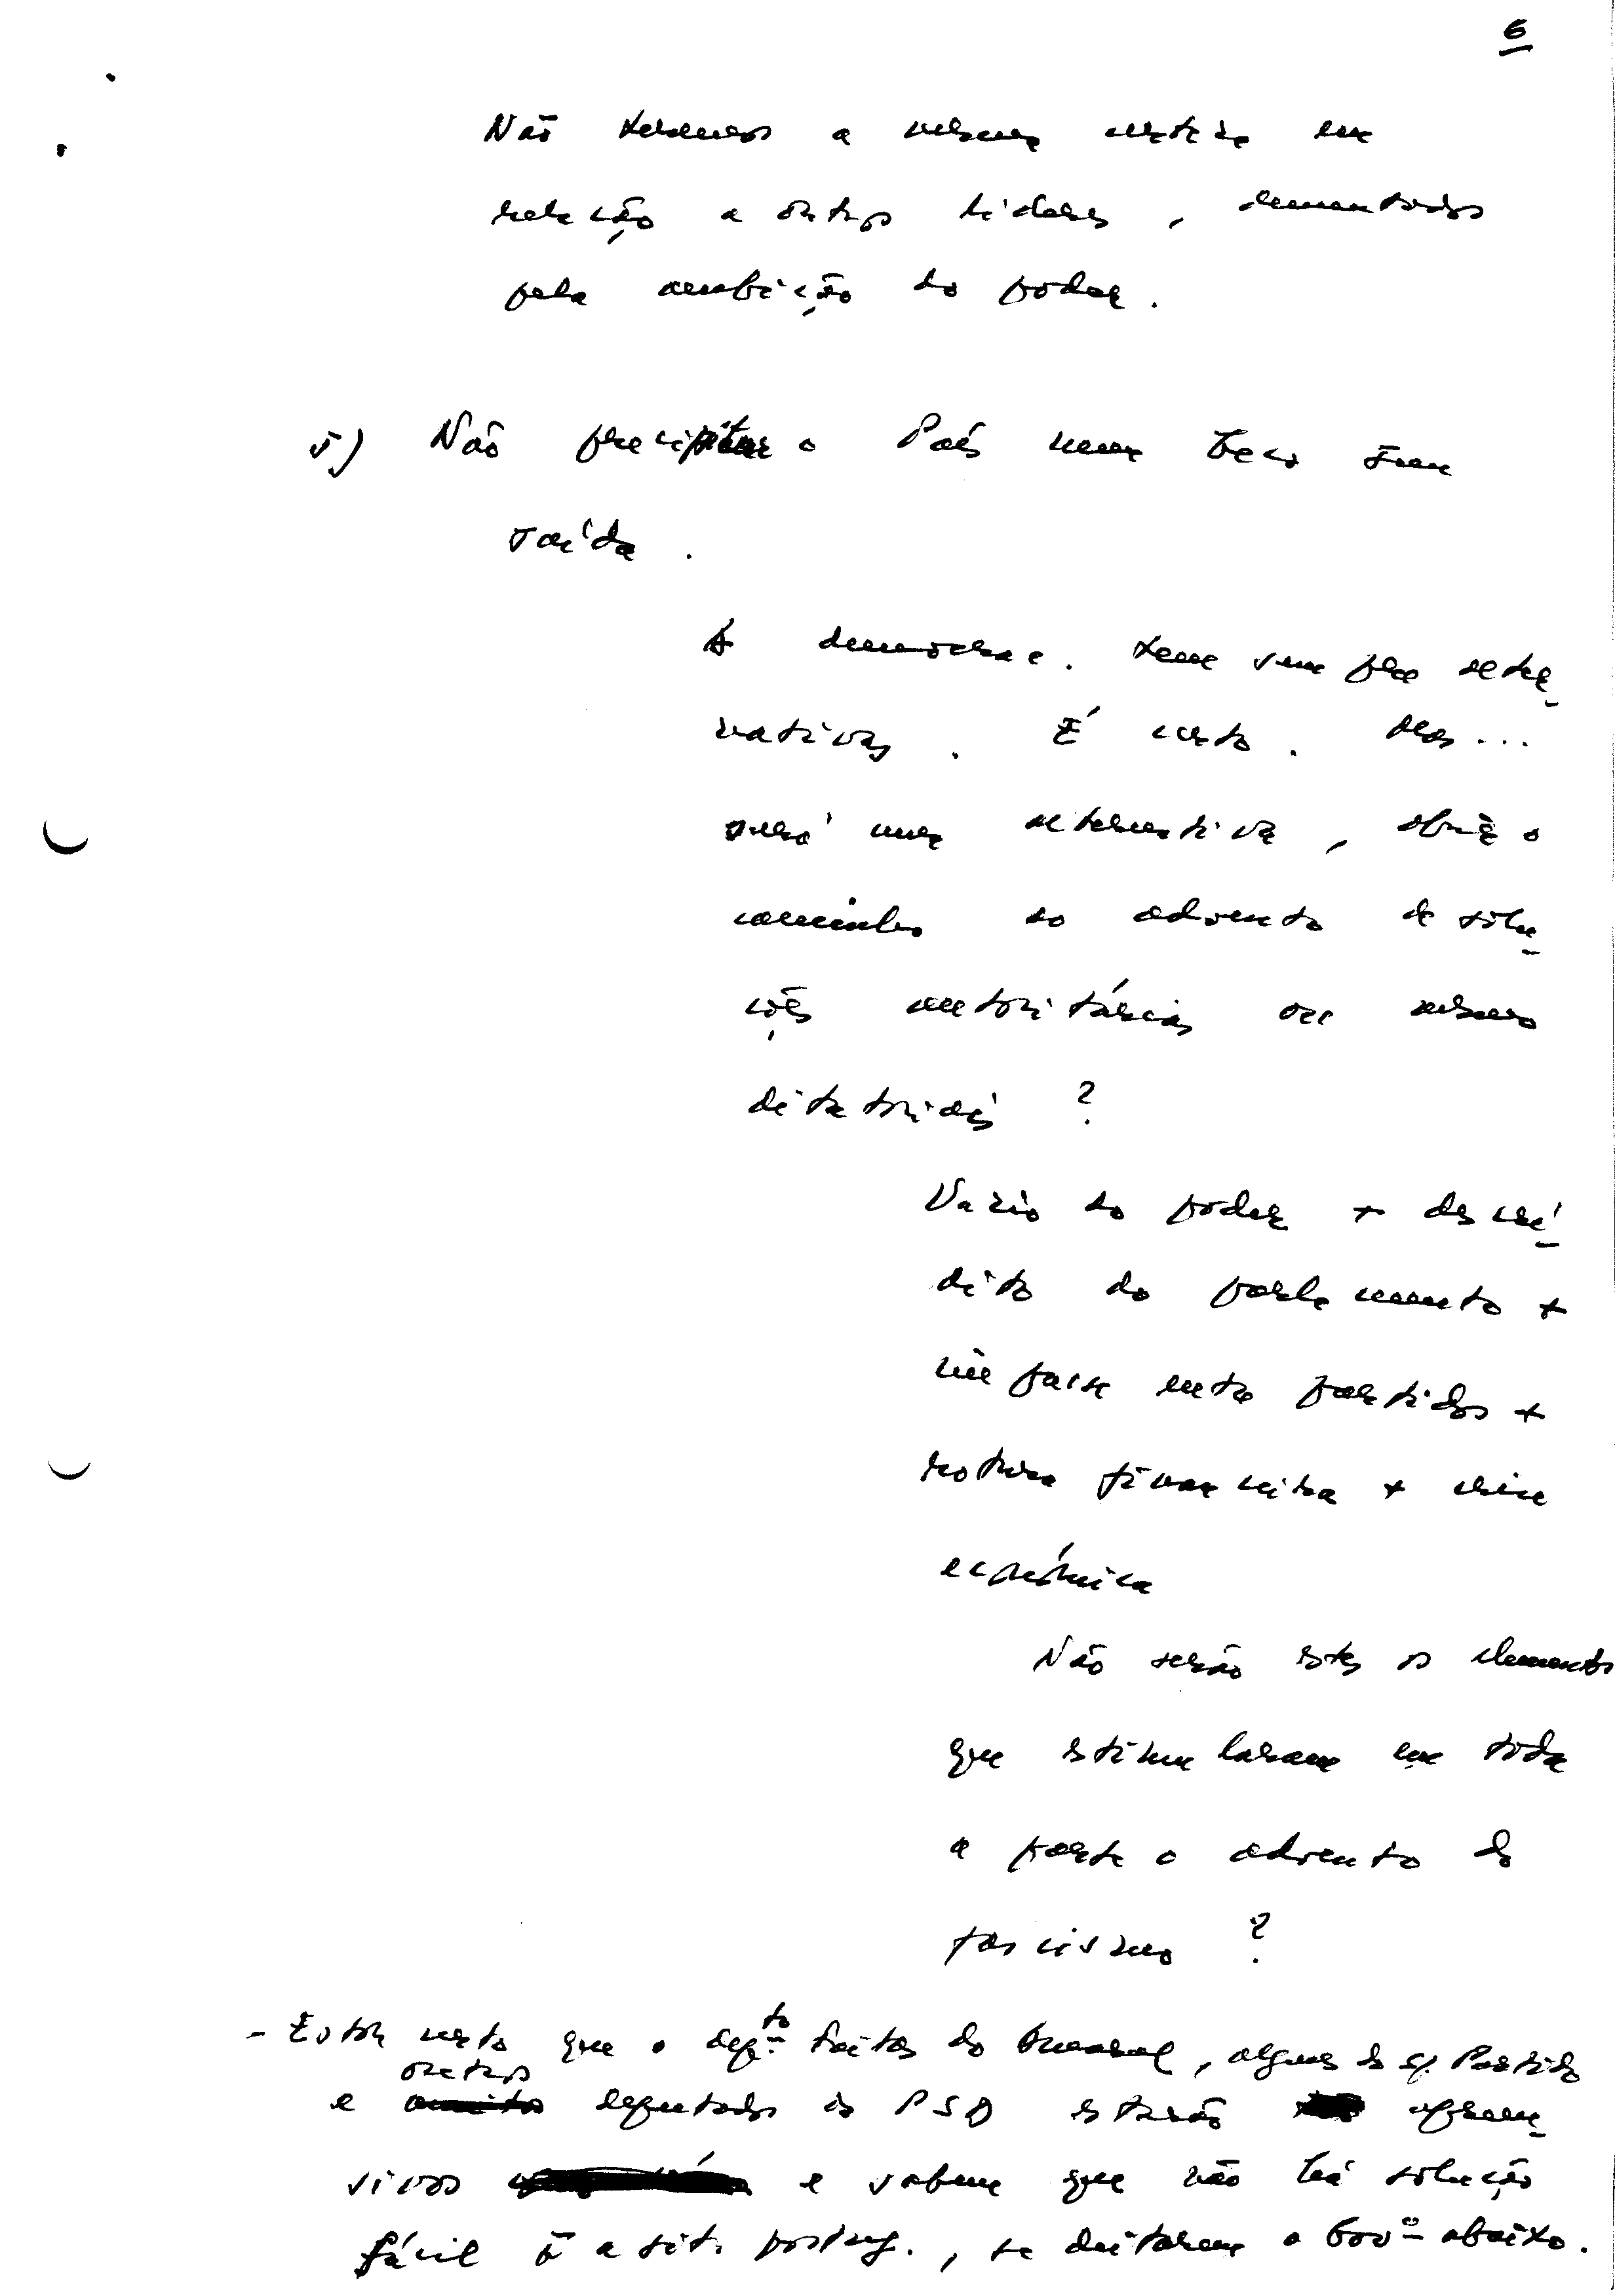 6
Não teremos a mesma certeza em
relação a outros líderes, dementados
pela ambição do poder.
5) Não precipitar o País num beco sem
saída.
A democrac. tem sempre alter
nativas. É certo. Mas...
será uma alternativa, abrir o
caminho ao advento de solu
ções autoritárias ou mesmo
ditatoriais ?
Vazio do poder + descré
dito do parlamento +
impasse entre partidos +
rotura financeira + crise
económica
Não serão estes os elementos
que estimularam em toda
a parte o advento do
fascismo ?
- Estou certo que o dep.to Freitas do Amaral, alguns do s/ Partido
outros
e deputados do PSD estarão apreen
sivos e sabem que não há solução
fácil p/ a sit. portug., se deitarem o Gov.º abaixo.